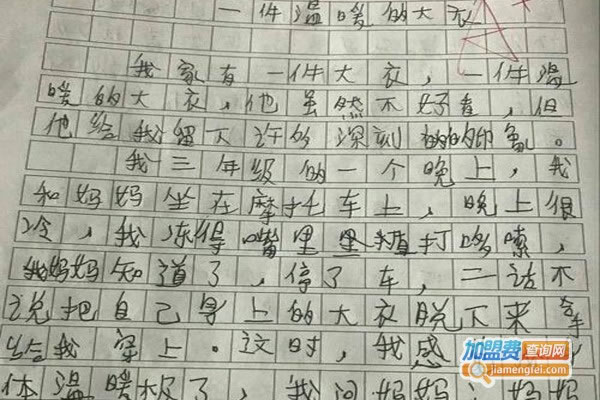 一件温暖的大衣
我家有一件大衣，一件温
暖的大衣，他虽然不好看，但
他给我留下许的深刻的印象。
我三年级的一个晚上，我
和妈妈坐在摩托车上，晚上很
冷，我冻得嘴里直打哆嗦，
我妈妈知道了，停了车，二话不
说把自己身上的大衣脱下来
给我穿上。这时，我感
体温暖极了，我问妈妈：妈妈
加盟费查询网
jiamengfei.com